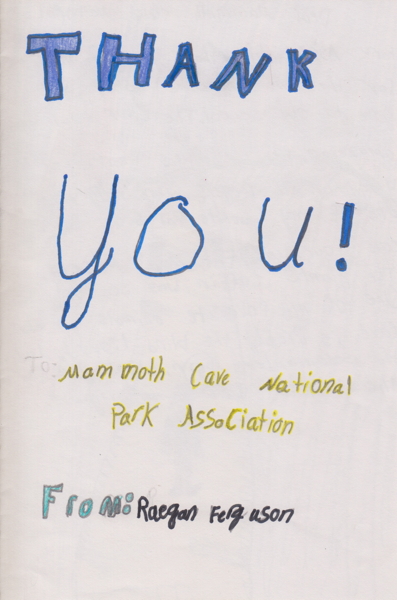 THANK
YOU!
To: Mammoth Cave National
Park Association
From: Raegan Ferguson